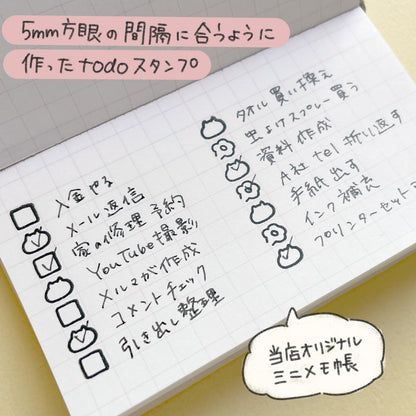 5mm方眼の間隔に合うように
作ったtodoスタンプ
入金やる
メール返信
家の修理予約
YouTube撮影
メルマガ作成
コメントチェック
引き出し整理
タオル買い換え
虫よけスプレー買う
資料作成
A社tel折り返す
手紙出す
インク補充
プリンターセット
当店オリジナル
ミニメモ帳